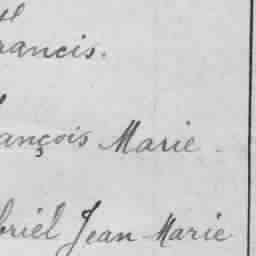 rancis.
ançois Marie
briel Jean Marie